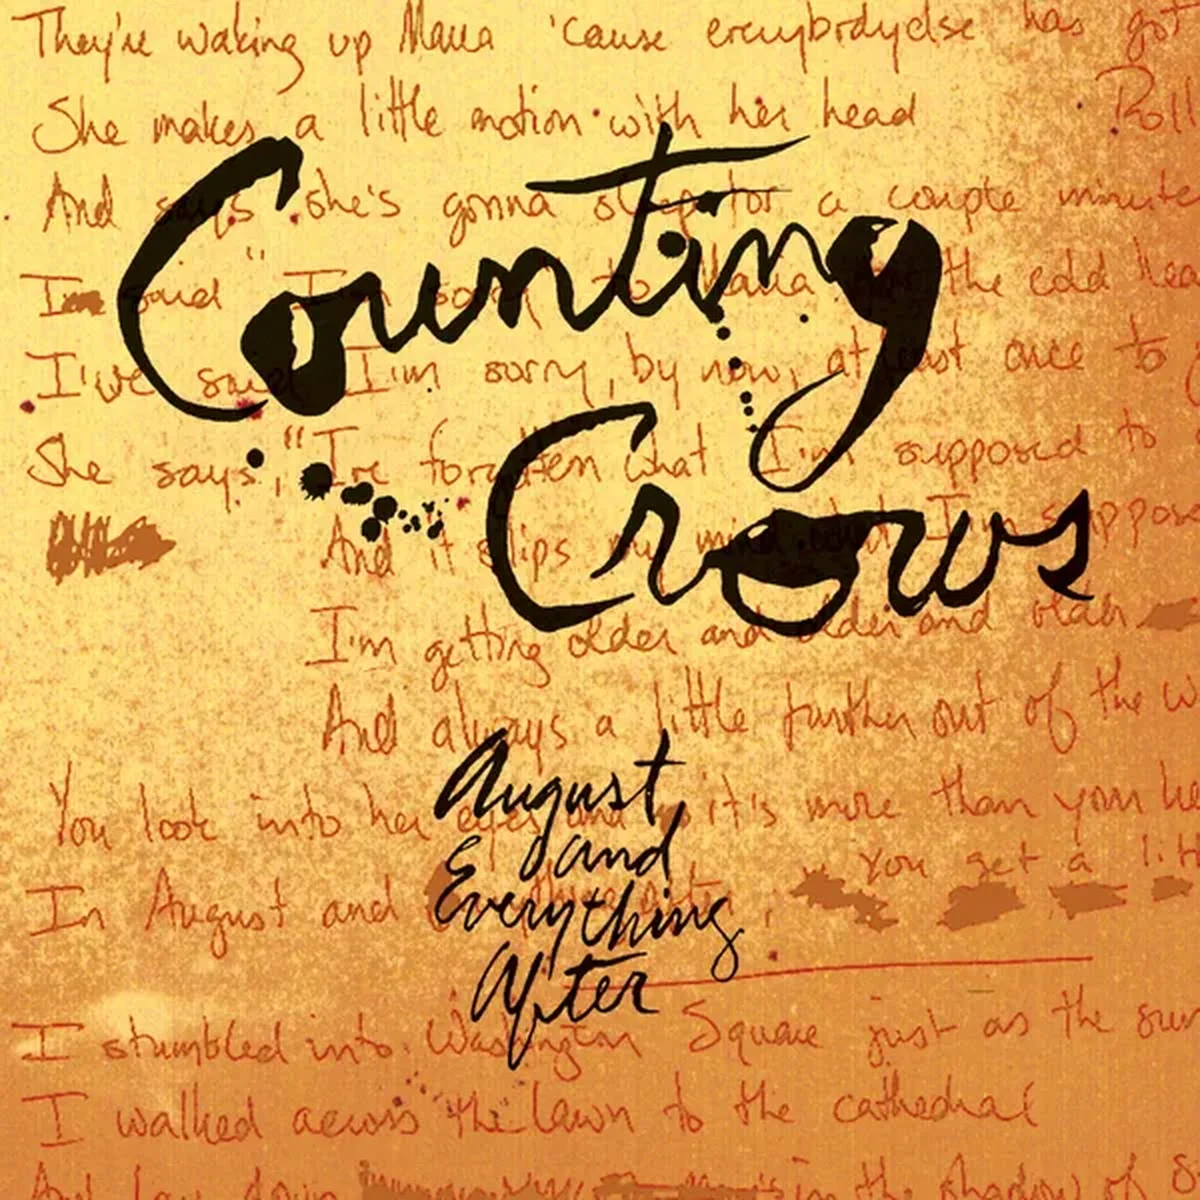 They're waking up Maria 'cause everybodyelse has got
She makes a little motion with her head
Roll
And says she's gonna sleep for a couple minute
I said "I'm sorry to Maria the cold hea
I've said I'm sorry, by now, at least once to
She says, "I've forgotten what I'm supposed to
And it slips my mind what I'm suppos
I'm getting older and older and older
And always a little further out of the w
You look into her eyes and it's more than your he
You get a litt
In August and
I stumbled into Washington Square just as the sun
I walked across the lawn to the cathedral
And lay down in the shadow of S
Counting
Crows
August
and
Everything
After